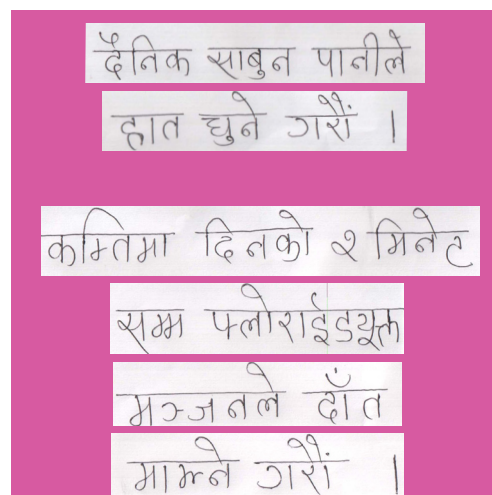 दैनिक साबुन पानीले
हात धुने गरौं ।
कम्तिमा दिनको २ मिनेट
सम्म फ्लोराईडयूक्त
मञ्जनले दाँत
माझ्ने गरौं ।